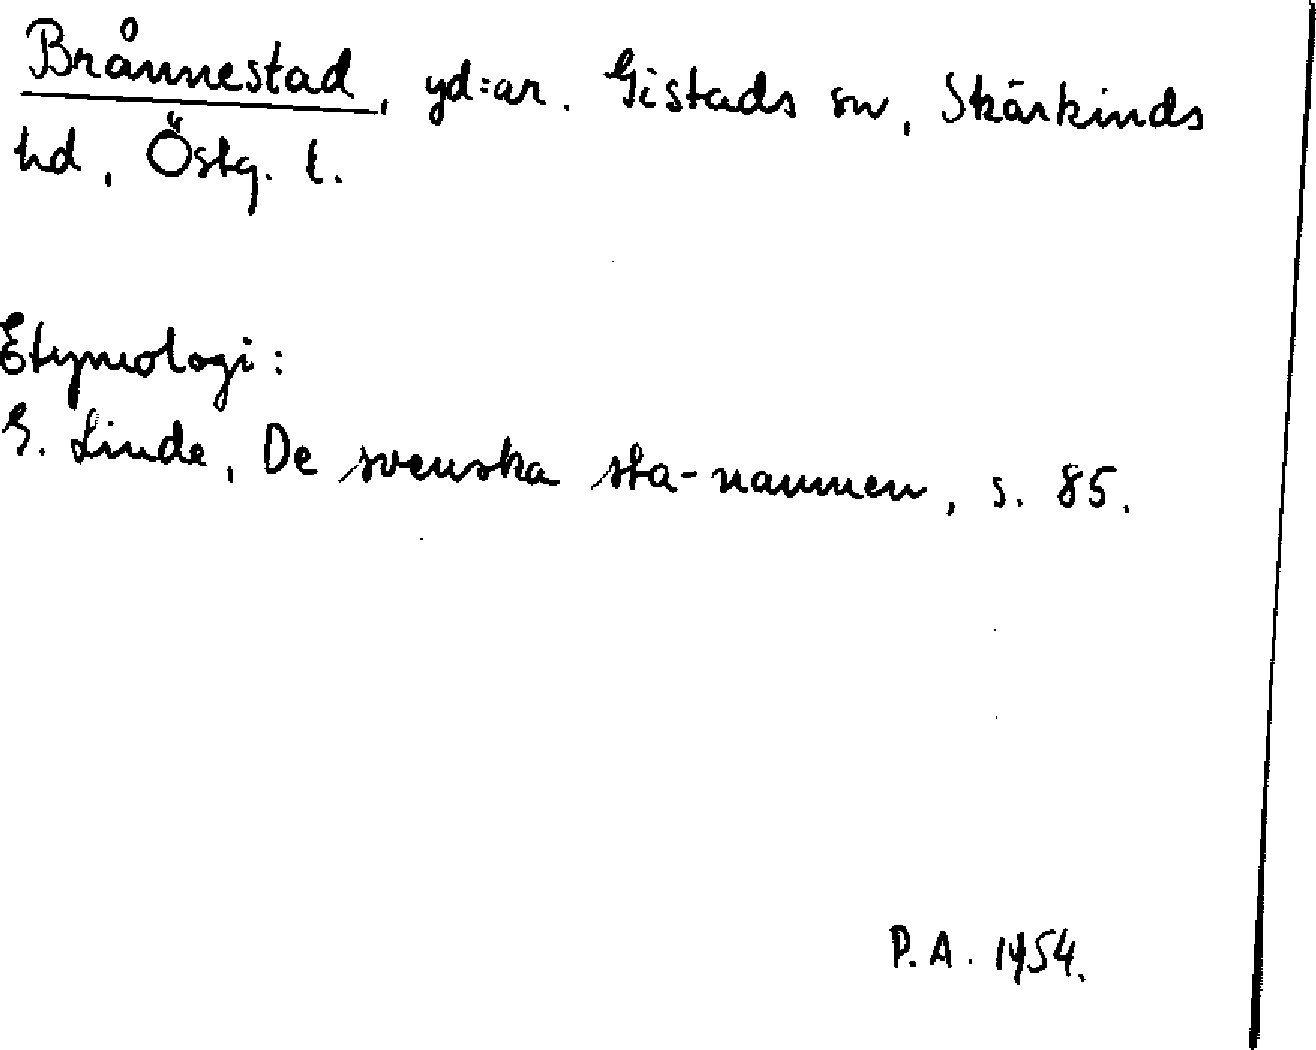 Brånnestad, gd:ar. Gistads sn, Skärkinds
hd, Östg. l.
Etymologi:
G. Linde, De svenska sta-namnen, s. 85.
P. A. 1954.